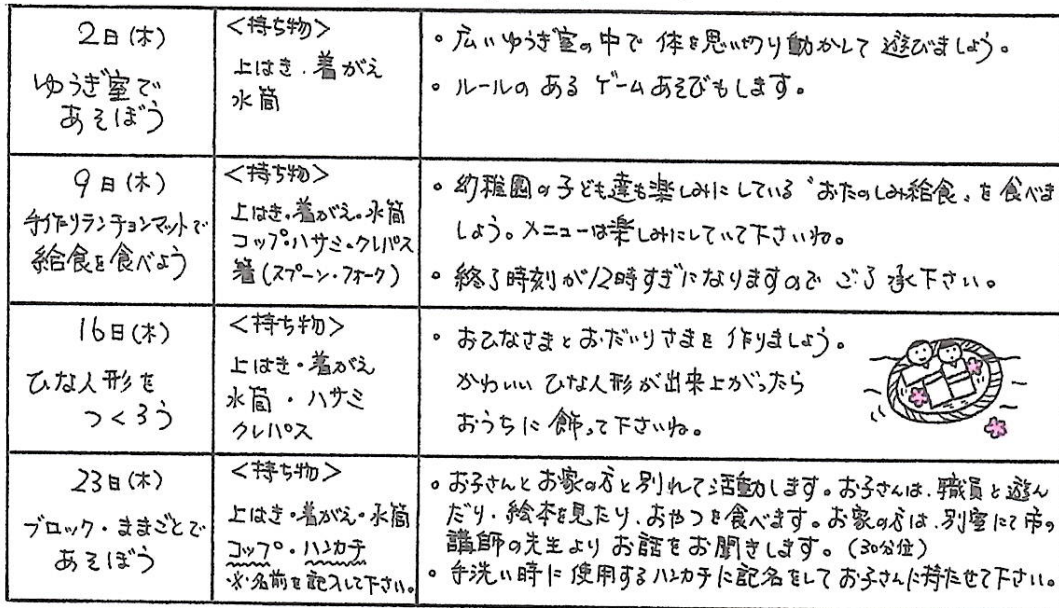 2日(木)
ゆうぎ室で
あそぼう
<持ち物>
上はき・着がえ
水筒
• 広いゆうぎ室の中で 体を思い切り動かして 遊びましょう。
• ルールの ある ゲームあそびもします。
9日(木)
手作りランチョンマットで
給食を食べよう
<持ち物>
上はき・着がえ・水筒
コップ・ハサミ・クレパス
箸(スプーン・フォーク)
• 幼稚園の子ども達も楽しみにしている “おたのしみ給食„ を食べま
しょう。メニューは楽しみにしていて下さいね。
• 終了時刻が12時すぎになりますので ご了承下さい。
16日(木)
ひな人形を
つくろう
<持ち物>
上はき・着がえ
水筒・ハサミ
クレパス
• おひなさまとおだいりさまを 作りましょう。
かわいい ひな人形が出来上がったら
おうちに飾って下さいね。
23日(木)
ブロック・ままごとで
あそぼう
<持ち物>
上はき・着がえ・水筒
コップ・ハンカチ
※名前を記入して下さい。
• お子さんとお家の方と別れて活動します。お子さんは、職員と遊ん
だり・絵本を見たり、おやつを食べます。お家の方は、別室にて市の
講師の先生より お話をお聞きします。(30分位)
• 手洗い時に使用するハンカチに記名をして お子さんに持たせて下さい。